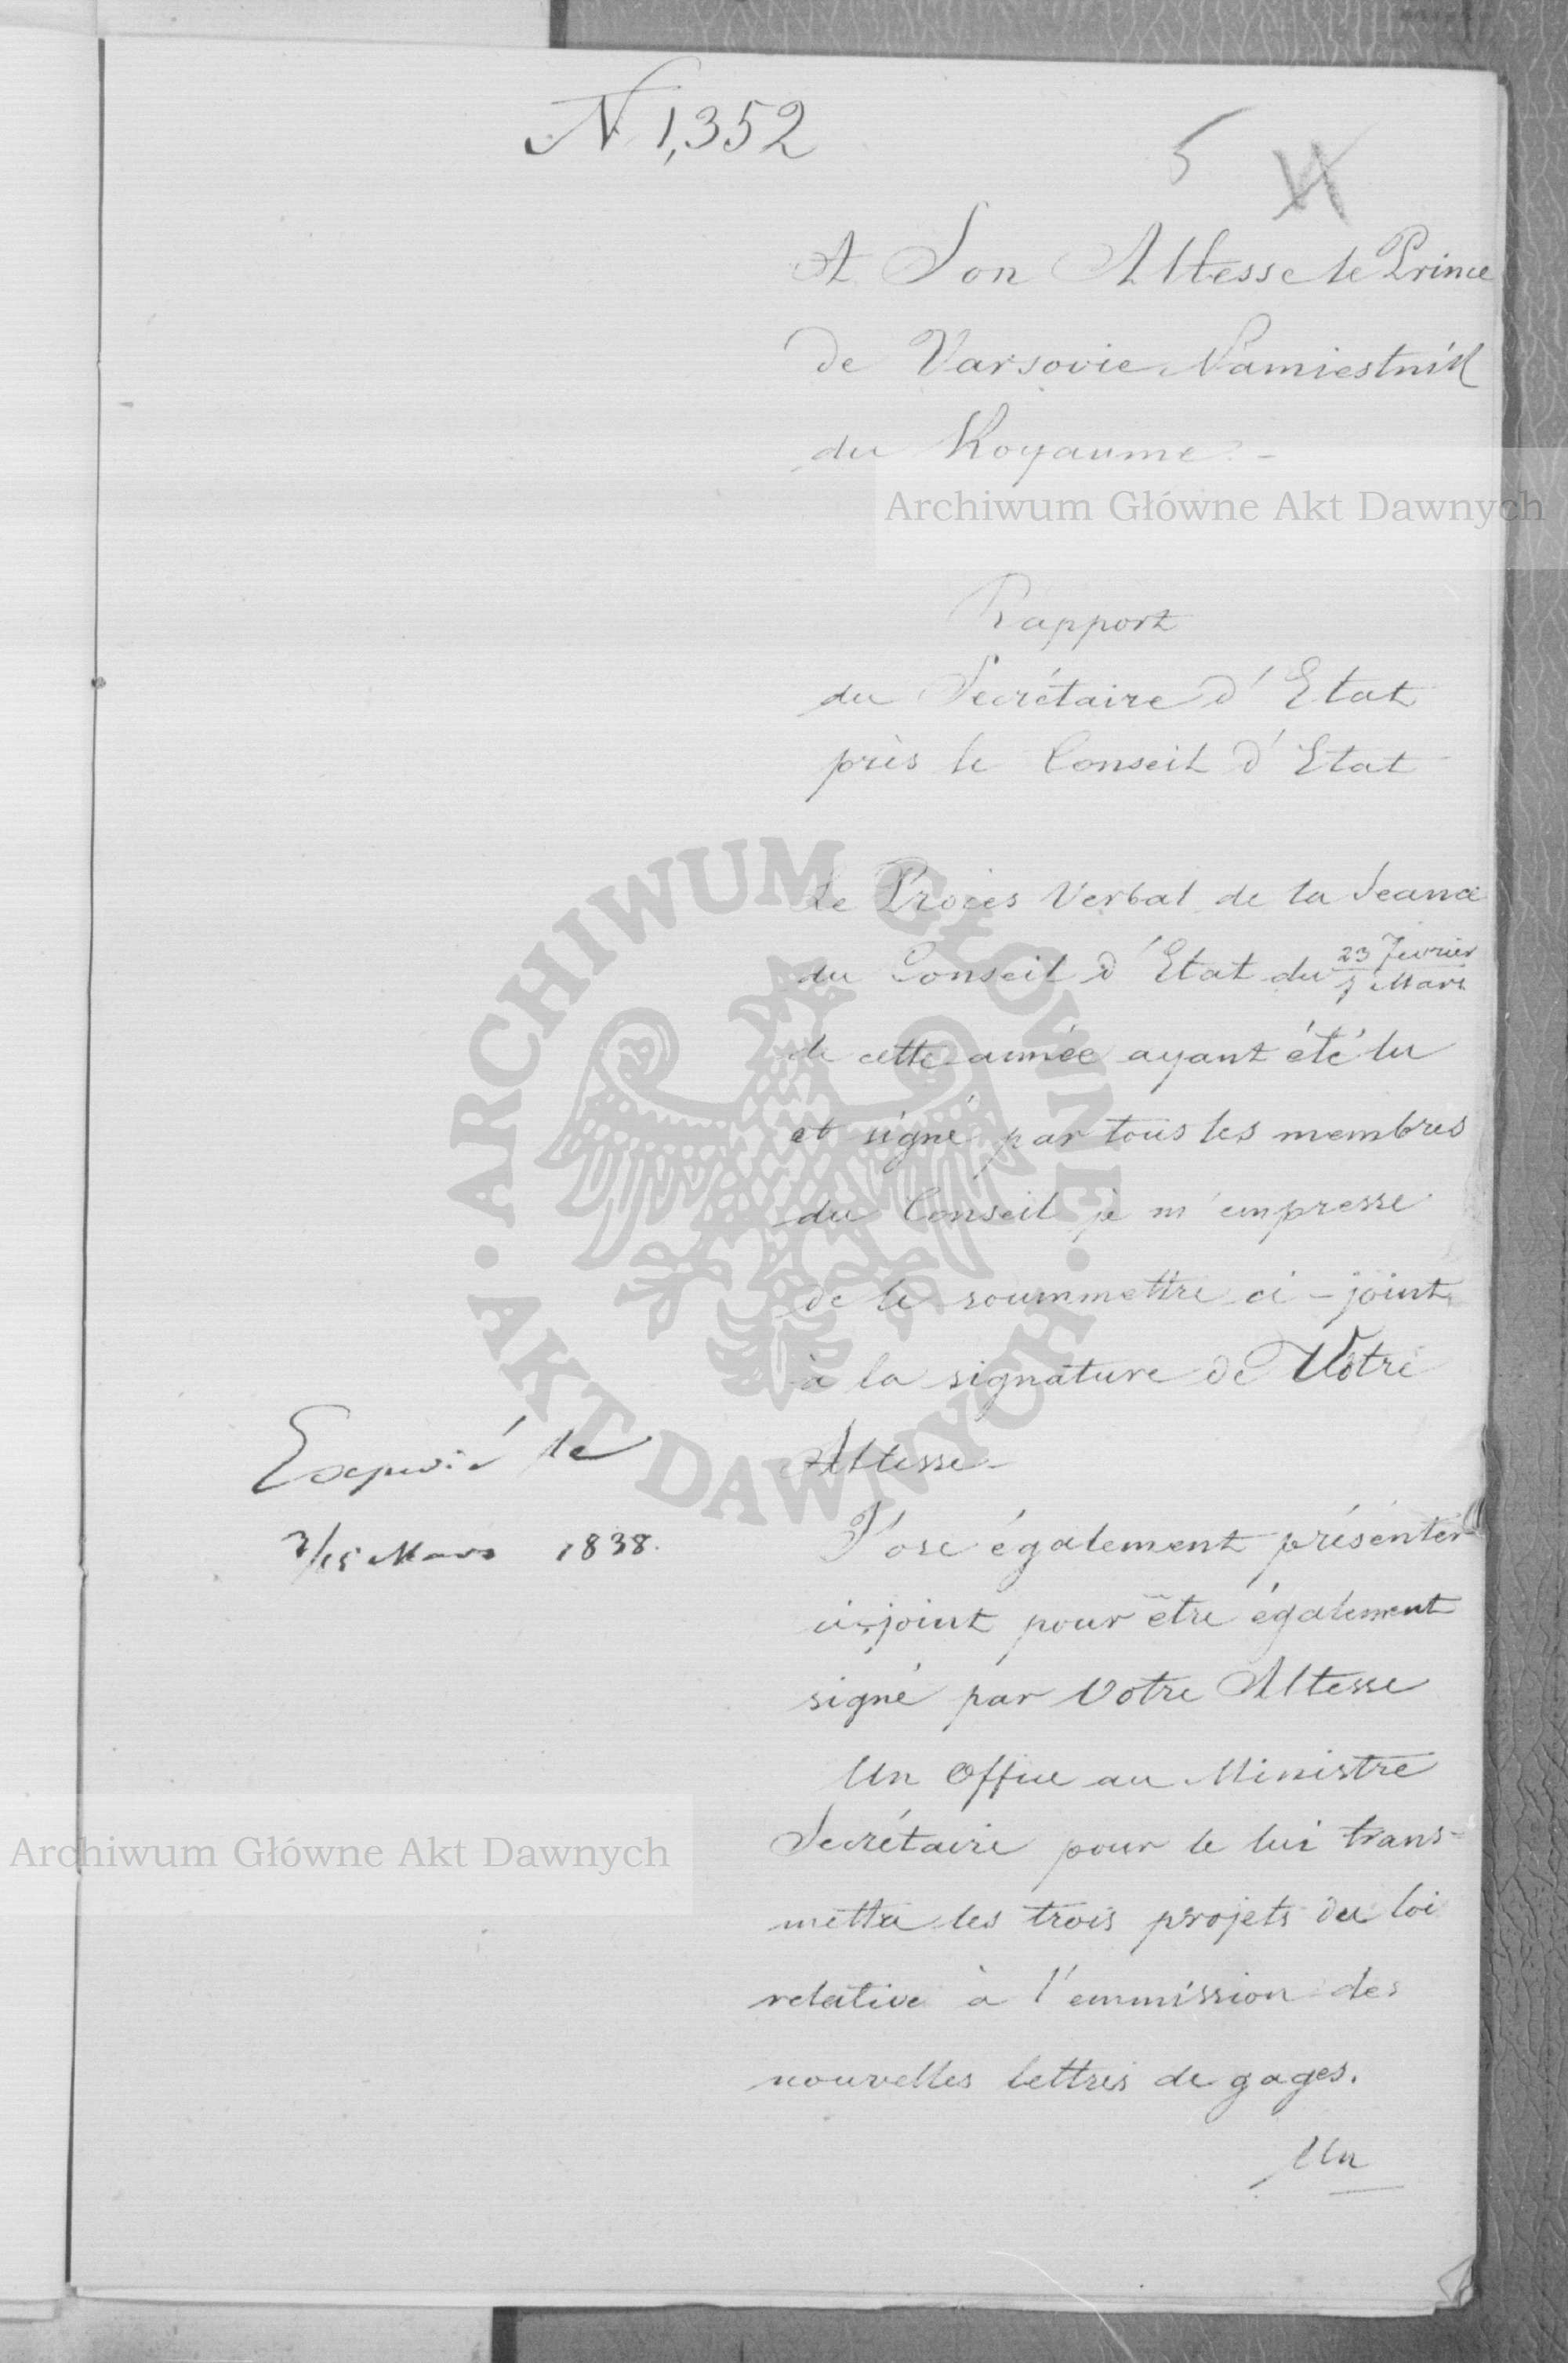 N 1,352
5
A Son Altesse le Prince
de Varsovie Namiestnik
du Royaume. -
Archiwum Główne Akt Dawnych
Rapport
du Secrétaire d'Etat
près le Conseil d'Etat
Le Procès Verbal de la Seance
du Conseil d'Etat du 23 Fevrier / 7 Mars
de cette année ayant été lu
et signé par tous les membres
du Conseil je m'empresse
de le soummettre ci-joint
à la signature de Votre
Altesse -
J'ose également présenter
ci-joint pour être également
signé par Votre Altesse
Un Office au Ministre
Secrétaire pour le lui trans-
mettre les trois projets de loi
relative à l'emmission des
nouvelles lettres de gages.
Un
Expedié le
3/15 Mars 1838.
Archiwum Główne Akt Dawnych
ARCHIWUM GŁÓWNE AKT DAWNYCH